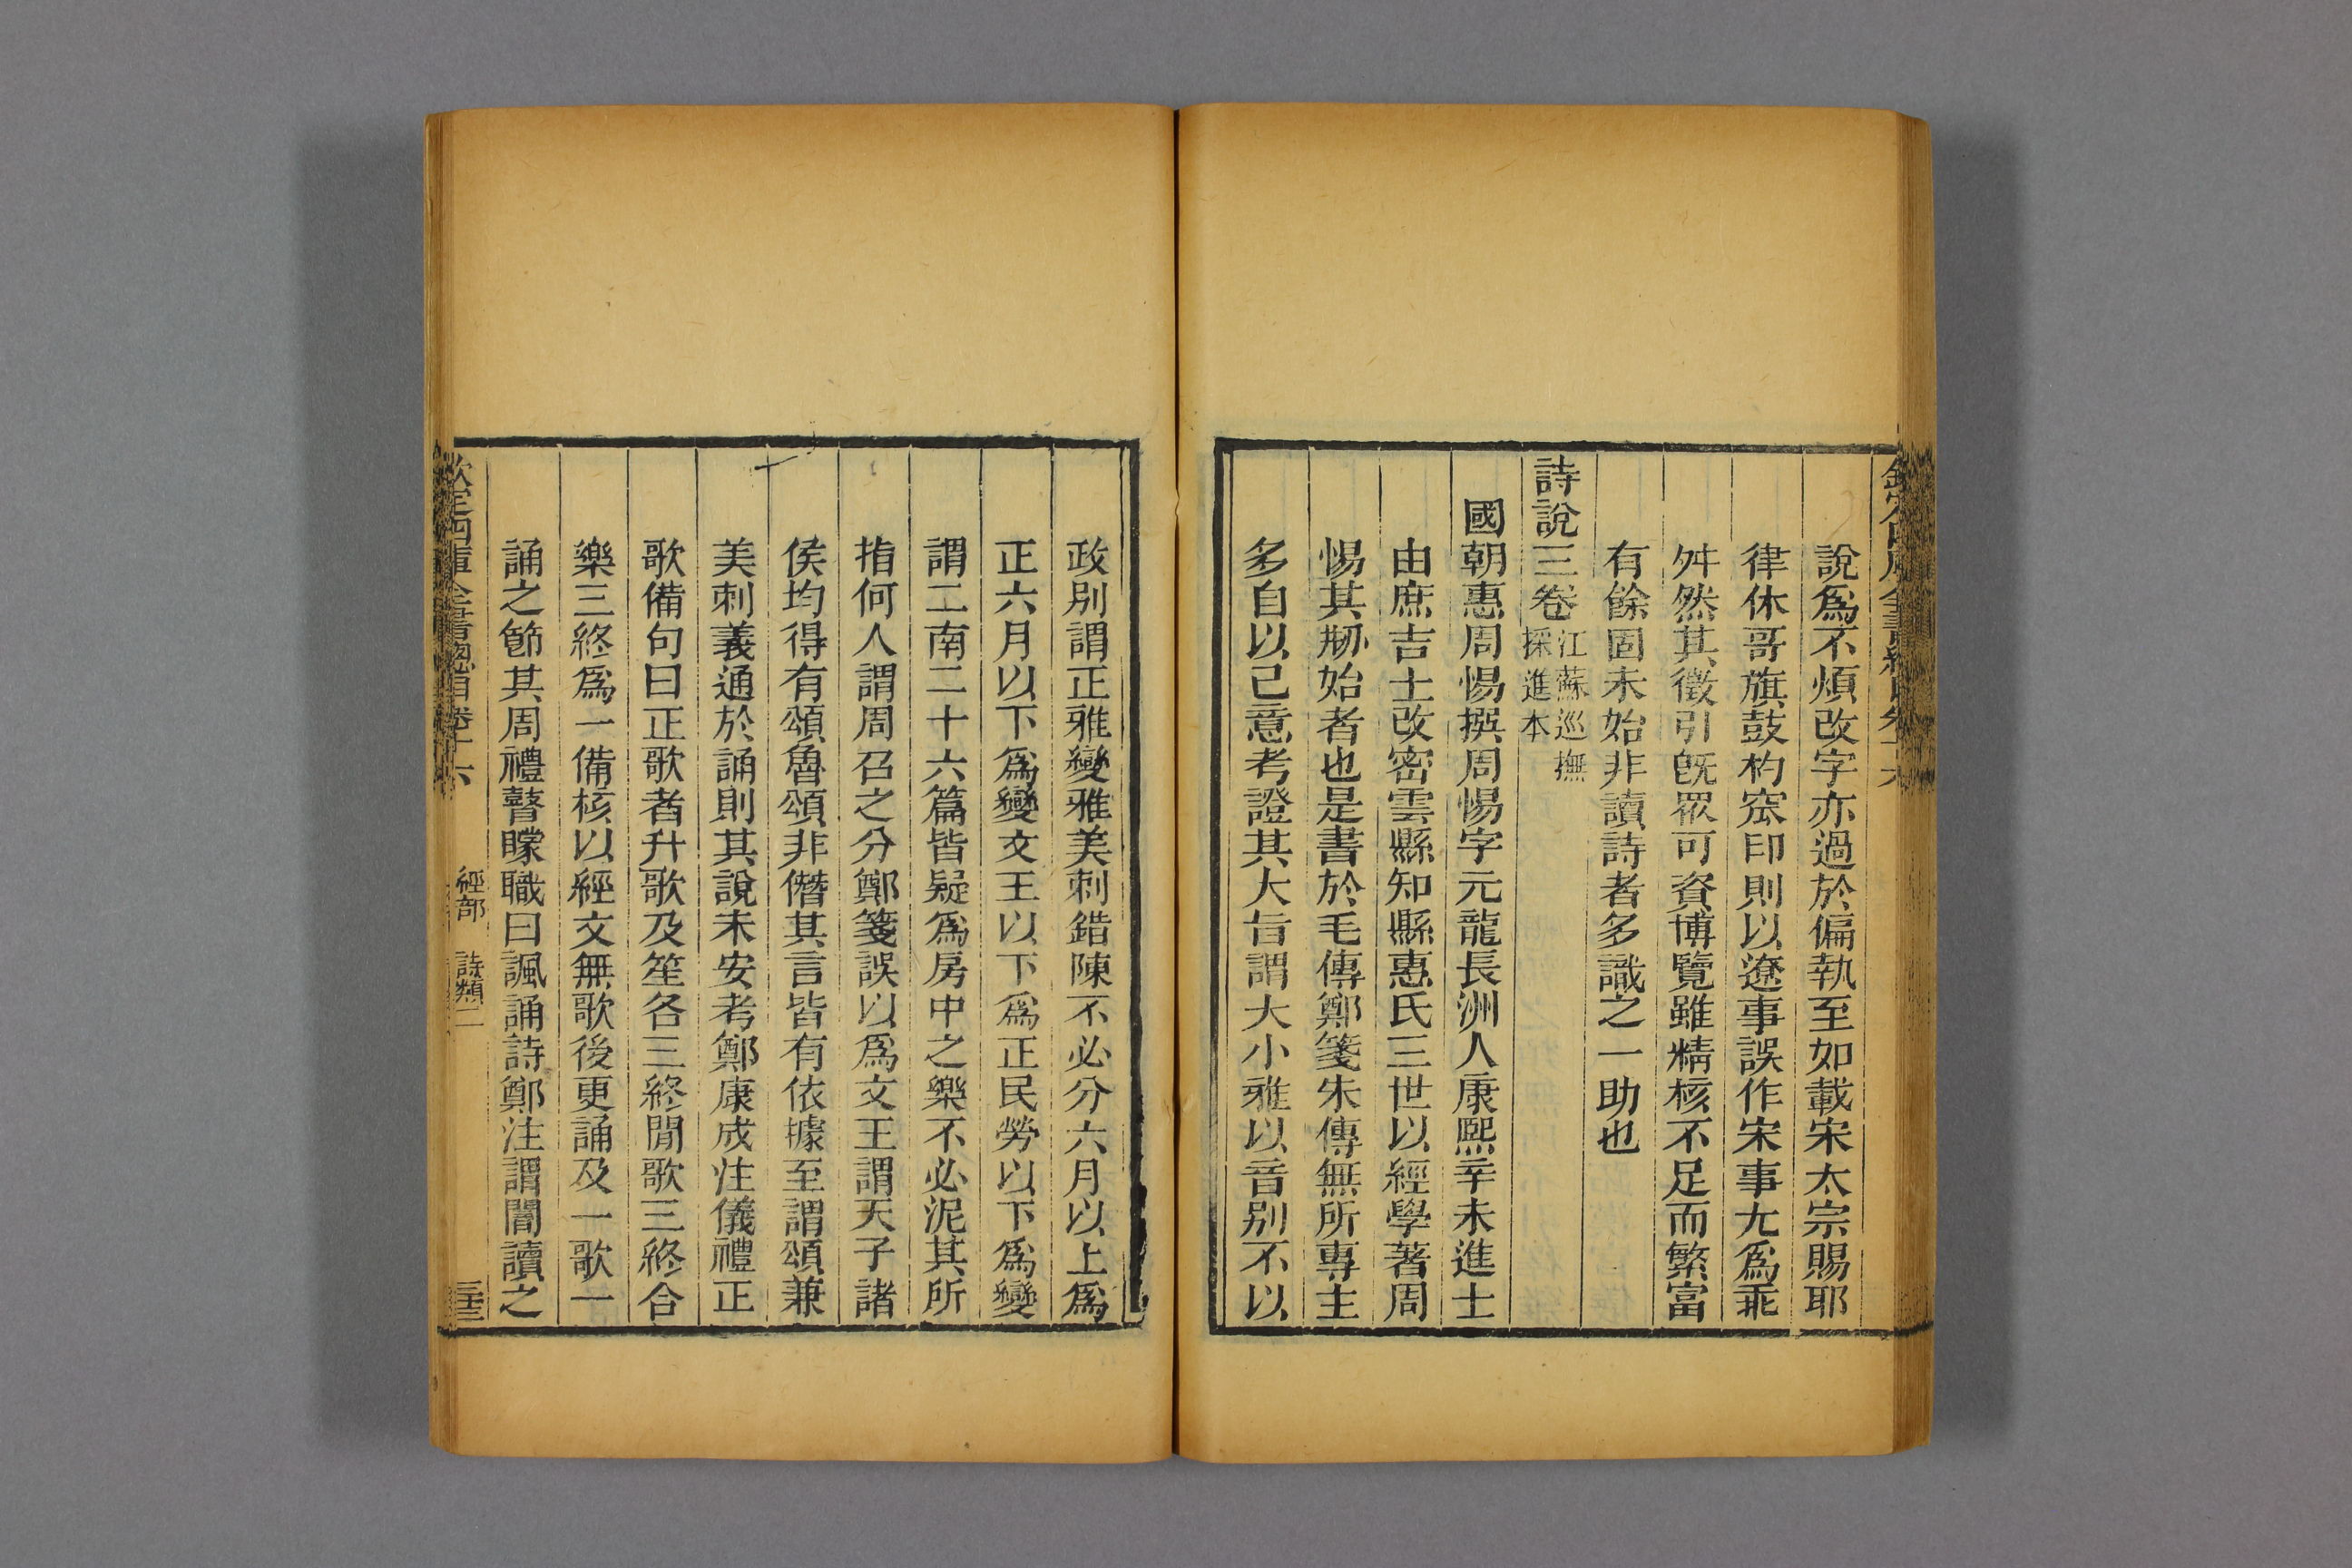 說爲不煩改字亦過於偏執至如載宋太宗賜耶
律休哥旗鼓杓窊印則以遼事誤作宋事尢爲乖
舛然其徵引旣眾可資博覽雖精核不足而繁富
有餘固未始非讀詩者多識之一助也
詩說三卷
江蘇巡撫
採進本
國朝惠周惕撰周惕字元龍長洲人康熙辛未進士
由庶吉士改密雲縣知縣惠氏三世以經學著周
惕其剙始者也是書於毛傳鄭箋朱傳無所專主
多自以己意考證其大旨謂大小雅以音别不以
政别謂正雅變雅美刺錯陳不必分六月以上爲
正六月以下爲變文王以下爲正民勞以下爲變
謂二南二十六篇皆疑爲房中之樂不必泥其所
指何人謂周召之分鄭箋誤以爲文王謂天子諸
侯均得有頌魯頌非僭其言皆有依據至謂頌兼
美刺義通於誦則其說未安考鄭康成注儀禮正
歌備句曰正歌者升歌及笙各三終閒歌三終合
樂三終爲一備核以經文無歌後更誦及一歌一
誦之節其周禮瞽矇職曰諷誦詩鄭注謂闇讀之
欽定四庫全書總目卷十六
經部 詩類二